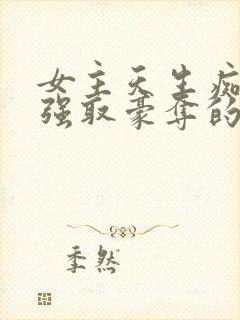 女主天生痴
强取豪夺的
季然